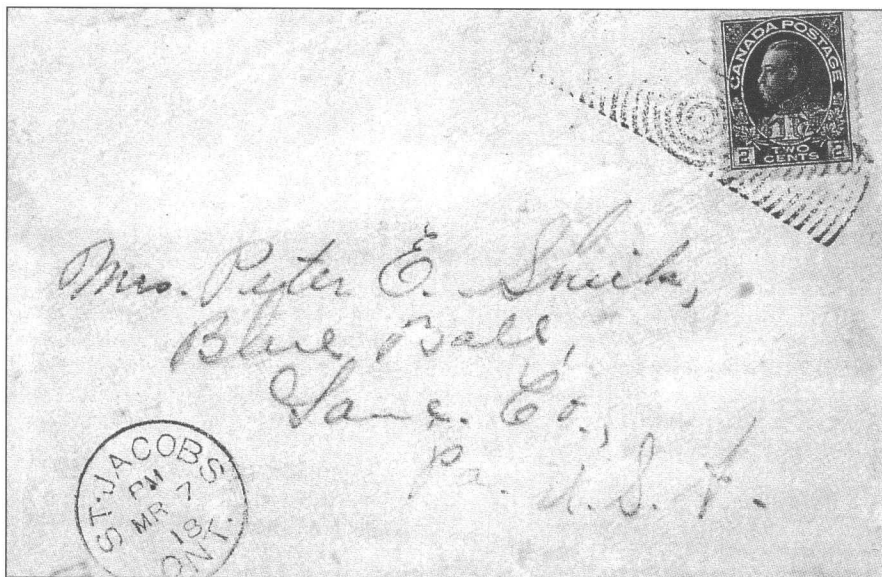 CANADA POSTAGE
1Tc
2 TWO CENTS 2
Mrs. Peter E.
Blue Ball,
Lanc. Co.,
Pa. U.S.A.
ST. JACOBS
PM
MR 7
18
ONT.